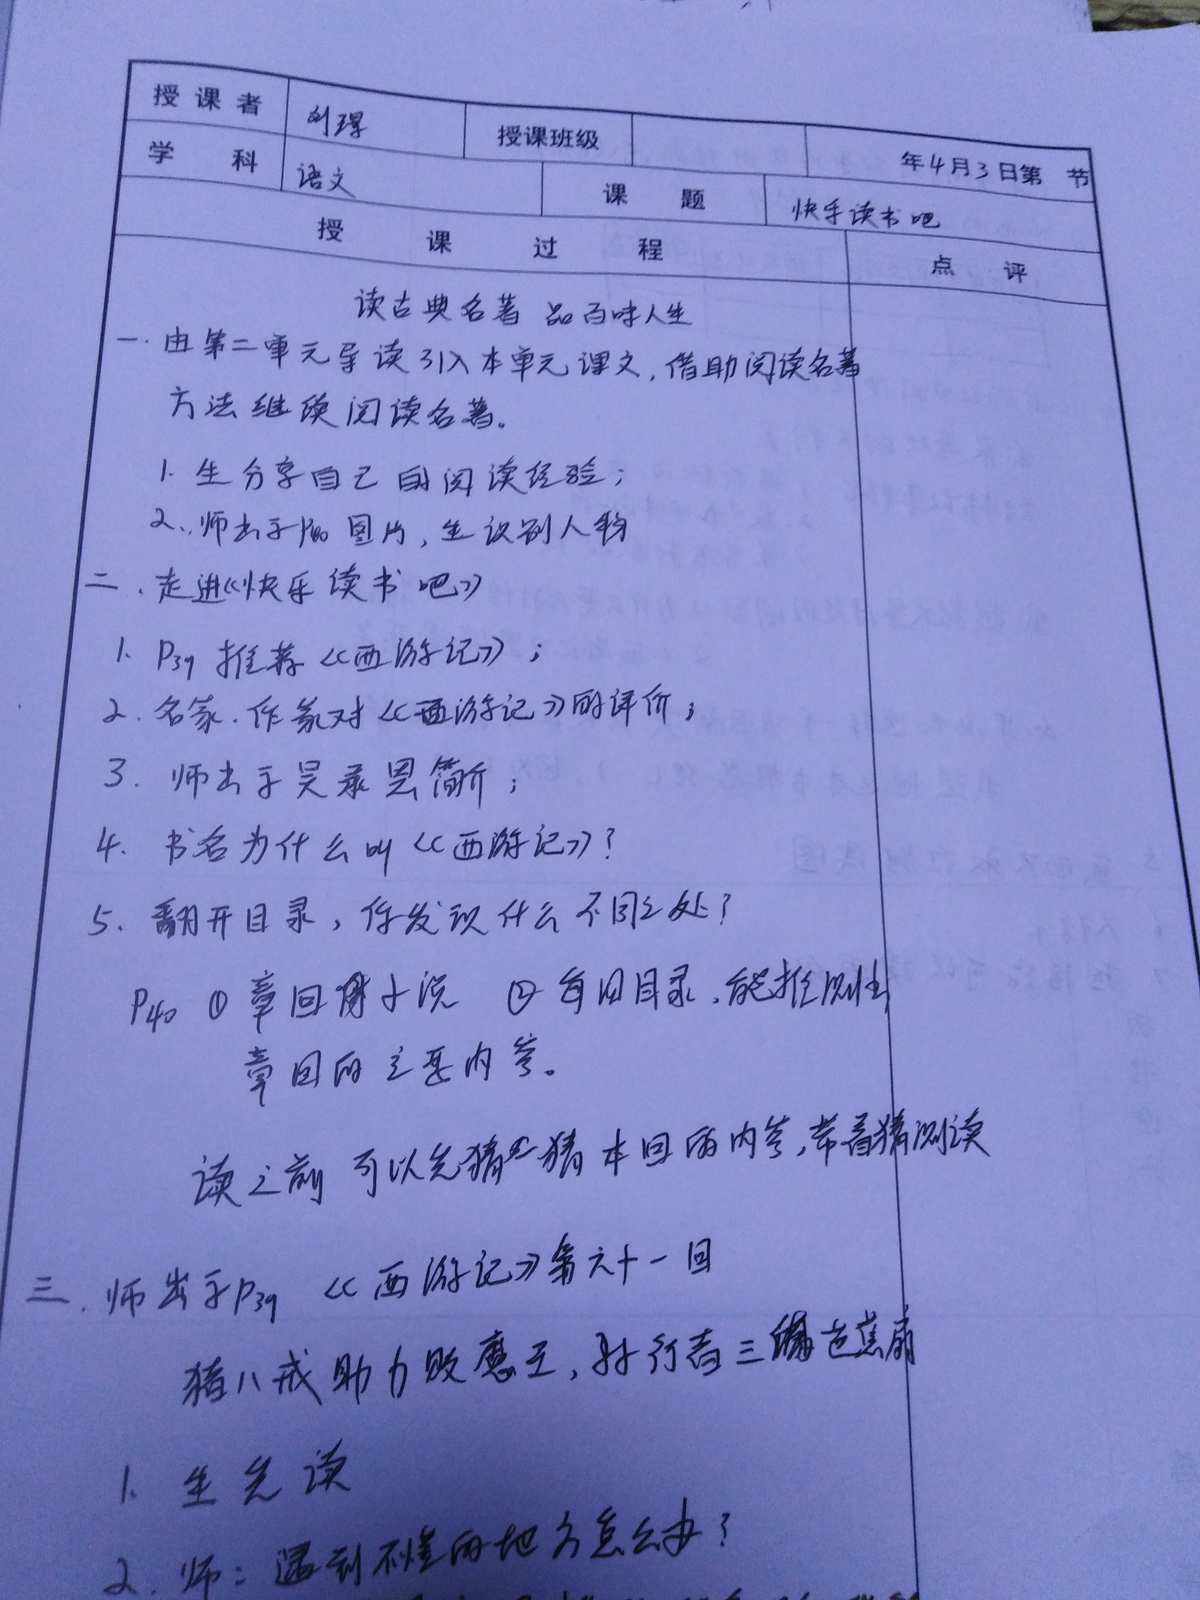 授课者 刘瑆 授课班级 年4月3日第 节
学 科 语文 课 题 快乐读书吧
授 课 过 程 点 评
读古典名著 品百味人生
一.由第二单元导读引入本单元课文,借助阅读名著
方法继续阅读名著。
1.生分享自己的阅读经验;
2.师出示P 图片,生识别人物
二.走进《快乐读书吧》
1.P39推荐《西游记》;
2.名家.作家对《西游记》的评价;
3.师出示吴承恩简介;
4.书名为什么叫《西游记》?
5.翻开目录,你发现什么不同之处?
P40 ①章回体小说 ②每回目录,能推测出
章回的主要内容。
读之前可以先猜一猜本回的内容,带着猜测读
三.师出示P39 《西游记》第六十一回
猪八戒助力败魔王,孙行者三调芭蕉扇
1.生先读
2.师:遇到不懂的地方怎么办?